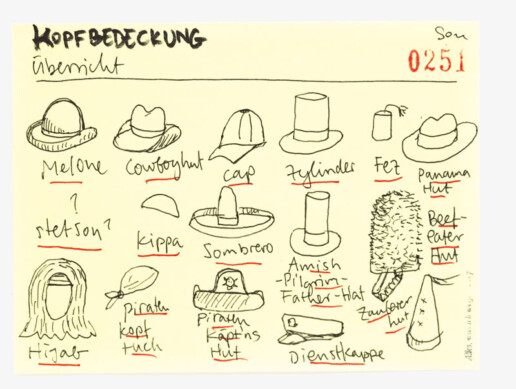 KOPFBEDECKUNG
Übersicht
0251
Melone
Cowboyhut
Cap
Zylinder
Fez
Panama
Hut
?
Stetson?
Kippa
Sombrero
Amish
-Pilgrim-
Father-Hat
Beef-
eater
Hut
Hijab
Piraten
kopf
tuch
Piraten
Käptns
Hut
Dienstkappe
Zauberer
hut